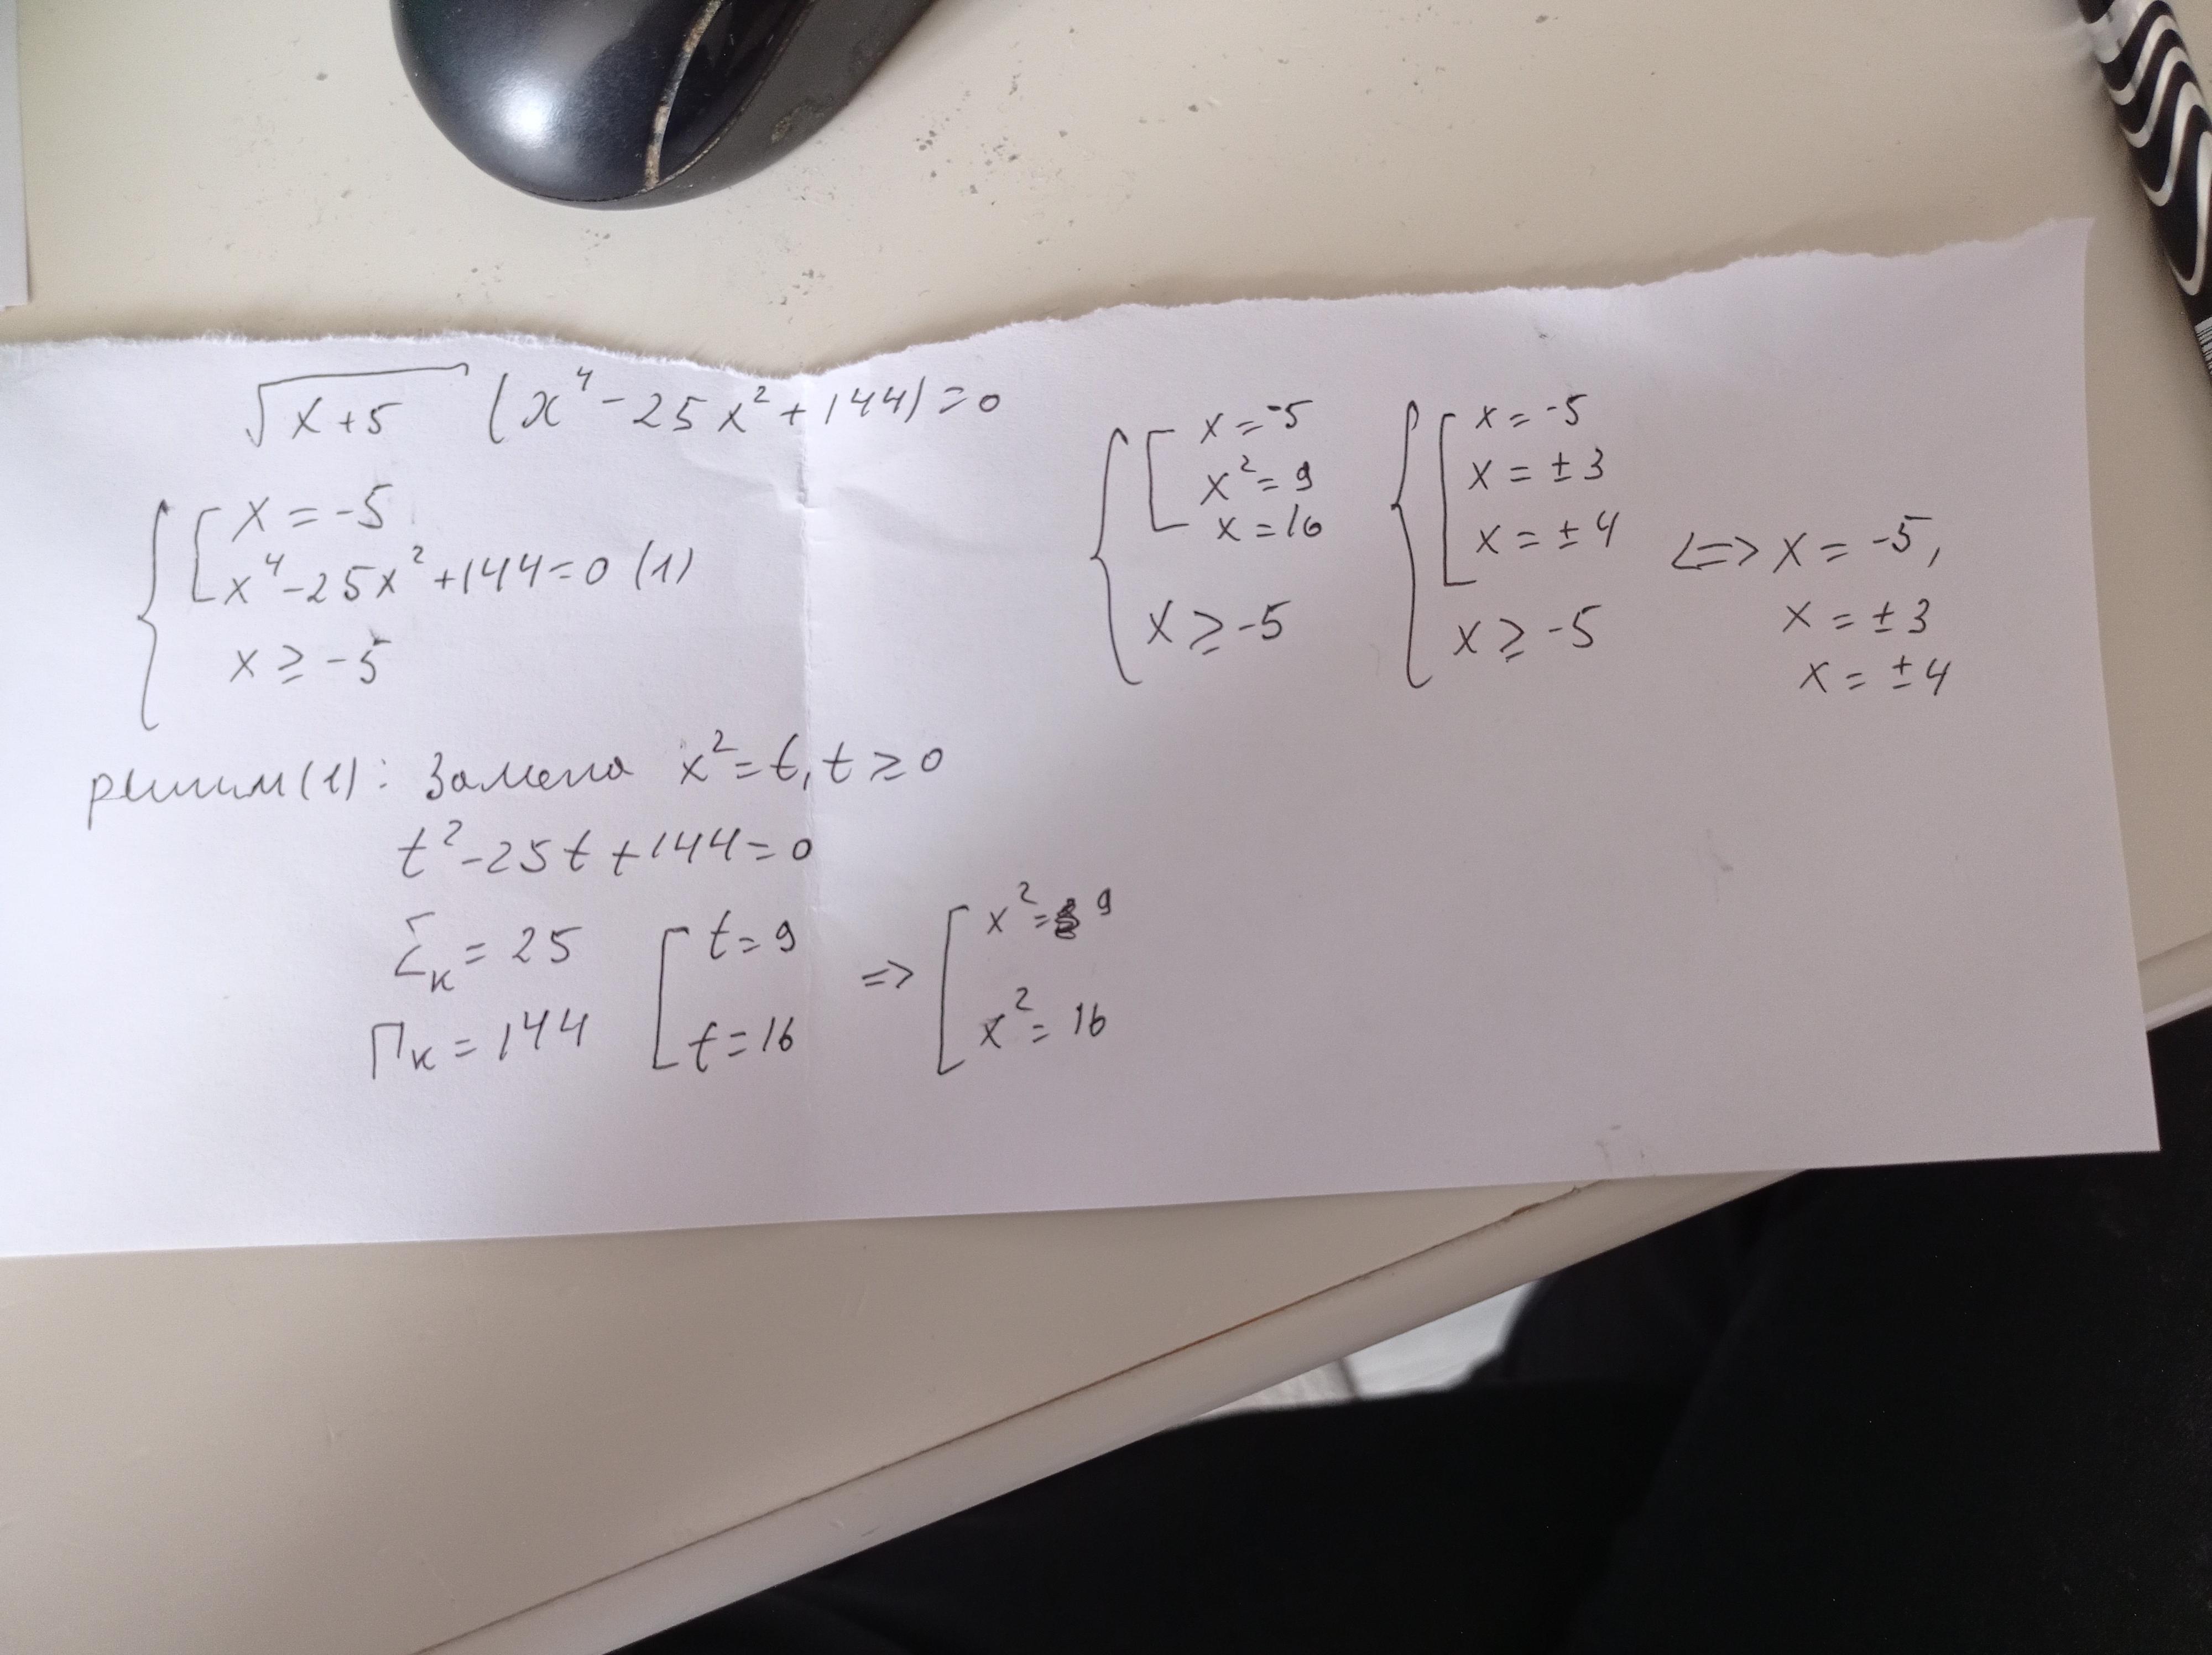 √(x+5) (x⁴ - 25x² + 144) = 0
x = -5
x⁴ - 25x² + 144 = 0 (1)
x ≥ -5
решим (1): Замена x² = t, t ≥ 0
t² - 25t + 144 = 0
Σк = 25
Пк = 144
t = 9
t = 16
=> x² = 9
x² = 16
x = -5
x² = 9
x = 16
x ≥ -5
x = -5
x = ± 3
x = ± 4
x ≥ -5
<=> x = -5,
x = ± 3
x = ± 4